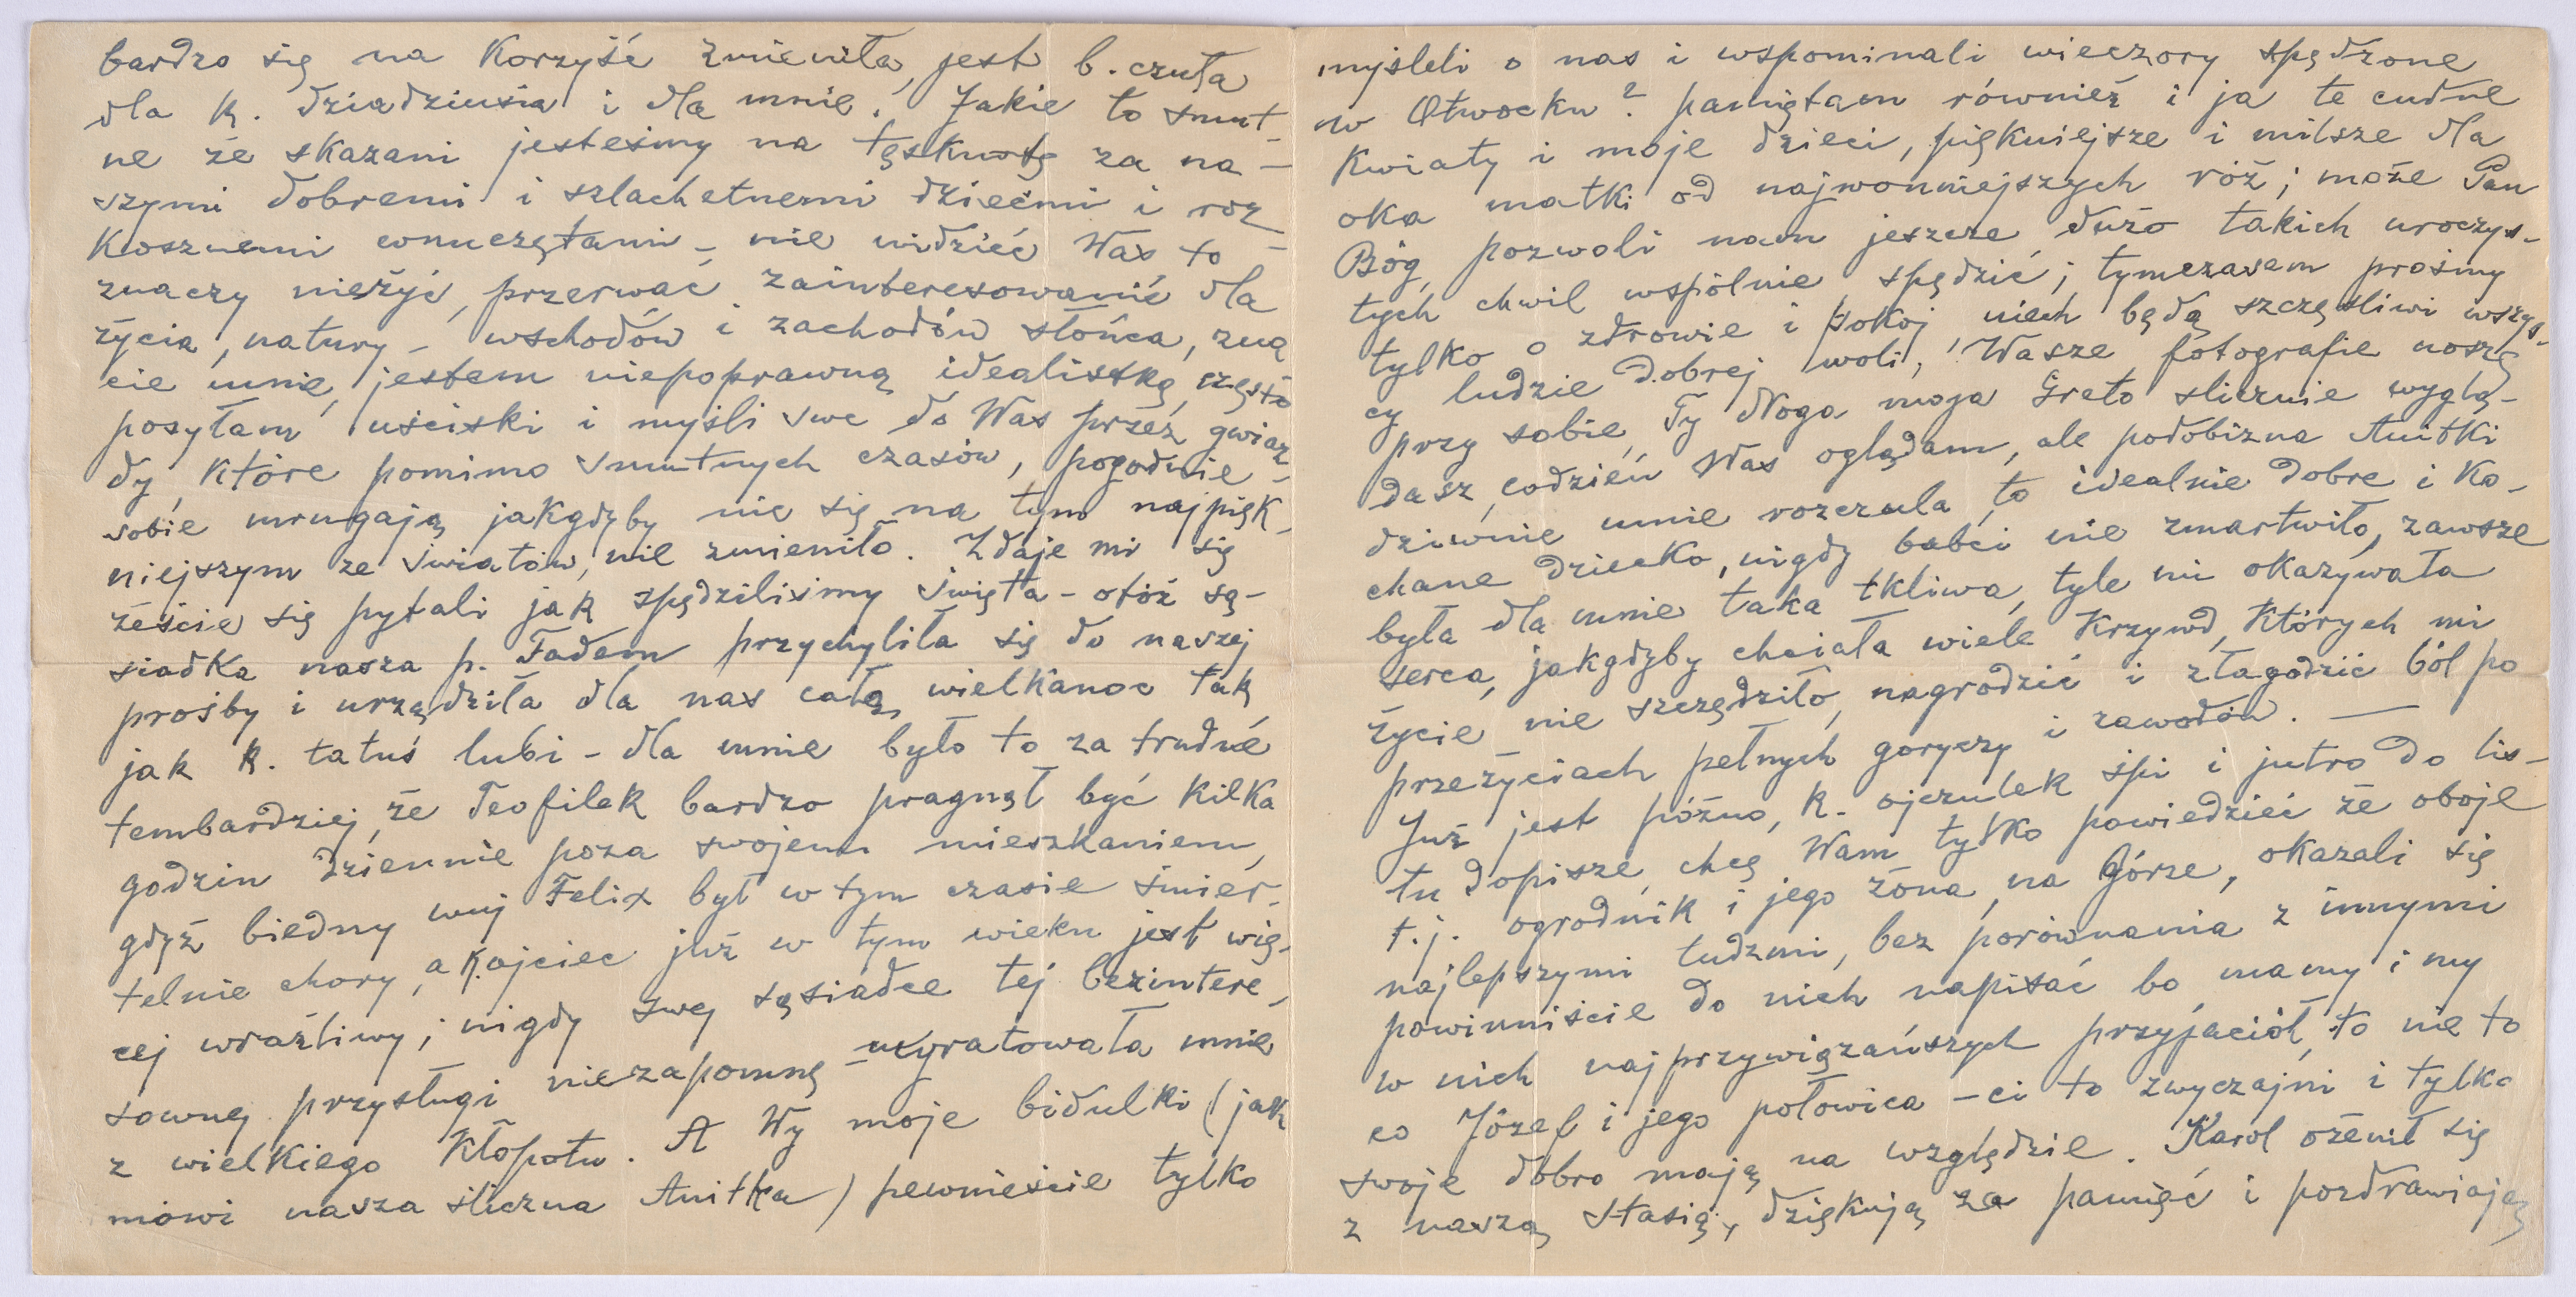 bardzo się na korzyść zmieniła, jest b. czuła
dla k. dziadziusia i dla mnie. Jakie to smut-
ne że skazani jesteśmy na tęsknotę za na-
szymi dobremi i szlachetnemi dziećmi i roz
kosznemi wnuczętami – nie widzieć Was to –
znaczy nieżyć, przerwać zainteresowanie dla
życia, natury – wschodów i zachodów słońca, zna
cie mnie, jestem niepoprawną idealistką, często
posyłam uściski i myśli swe do Was przez gwiaz
dy, które pomimo smutnych czasów, pogodnie –
sobie mrugają jakgdyby nic się na tym najpięk-
niejszym ze światów, nie zmieniło. Zdaje mi się
żeście się pytali jak spędziliśmy święta – otóż są-
siadka nasza p. Fadem przychyliła się do naszej
prośby i urządziła dla nas całą wielkanoc tak
jak k. tatuś lubi – dla mnie było to za trudne
tembardziej, że Teofilek bardzo pragnął być kilka
godzin dziennie poza swojem mieszkaniem,
gdyż biedny wuj Felix był w tym czasie śmier-
telnie chory, a k. ojciec już w tym wieku jest wię-
cej wrażliwy; nigdy swej sąsiadce tej bezintere-
sownej przysługi niezapomnę – wyratowała mnie
z wielkiego kłopotu. A Wy moje bidulki (jak
mówi nasza śliczna Anitka) pewnieście tylko
myśleli o nas i wspominali wieczory spędzone
w Otwocku? pamiętam również i ja te cudne
kwiaty i moje dzieci, piękniejsze i milsze dla
oka matki od najwonniejszych róż; może Pan
Bóg, pozwoli nam jeszcze dużo takich uroczys-
tych chwil wspólnie spędzić; tymczasem prośmy
tylko o zdrowie i pokój, niech będą szczęśliwi wszys-
cy ludzie dobrej woli, Wasze fotografie noszę
przy sobie, Ty droga moja Greto ślicznie wyglą-
dasz, codzień Was oglądam, ale podobizna Anitki
dziwnie mnie rozczula, to idealnie dobre i ko-
chane dziecko, nigdy babci nie zmartwiło, zawsze
była dla mnie taka tkliwa, tyle mi okazywała
serca, jakgdyby chciała wiele krzywd, których mi
życie nie szczędziło, nagrodzić i złagodzić ból po
przeżyciach pełnych goryczy i zawodów. —
Już jest późno, k. ojczulek śpi i jutro do lis-
tu dopisze, chcę Wam tylko powiedzieć że oboje
t.j. ogrodnik i jego żona, na Górze, okazali się
najlepszymi ludzmi, bez porównania z innymi
powinniście do nich napisać bo mamy i my
w nich najprzywiązańszych przyjaciół, to nie to
co Józef i jego połowica – ci to zwyczajni i tylko
swoje dobro mają na względzie. Karol ożenił się
z naszą Stasią, dziękują za pamięć i pozdrawiają